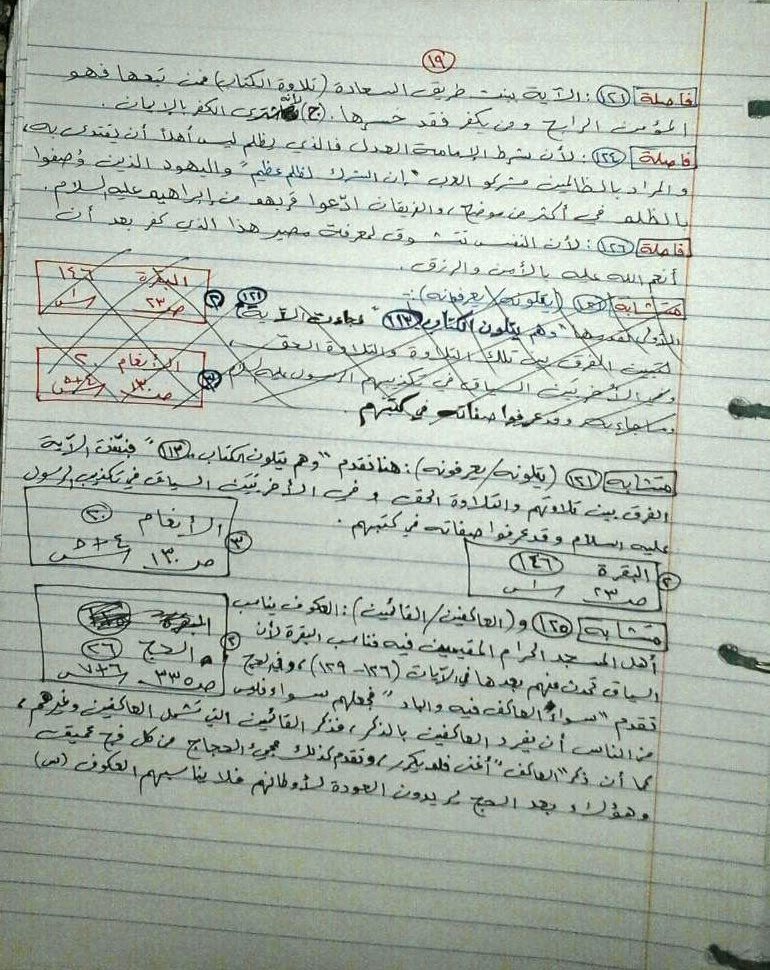 ١٩
فاصلة (١٢١): الآية بينت طريق السعادة (تلاوة الكتاب) فمن تبعها فهو
المؤمن الرابح ومن يكفر فقد خسرها. (ج) لأنه اشترى الكفر بالإيمان.
فاصلة (١٢٤): لأن شرط الإمامة العدل فالذي يظلم ليس أهلا أن يقتدى به،
والمراد بالظالمين مشركو العرب "إن الشرك لظلم عظيم" واليهود الذين وُصفوا
بالظلم في أكثر من موضع، والفريقان ادّعوا قربهم من إبراهيم عليه السلام.
فاصلة (١٢٦): لأن النفس تتشوق لمعرفة مصير هذا الذي كفر بعد أن
أنعم الله عليه بالأمن والرزق.
متشابه (يتلونه/يعرفونه):
"وهم يتلون الكتاب" (١١٣) وجاءت الآية (١٢١)
لتبين الفرق بين تلك التلاوة والتلاوة الحق،
وفي الأخريين السياق في تكذيبهم الرسول عليه السلام
وما جاء به وقد عرفوا صفاته في كتبهم.
(٢) البقرة ١٤٦
ص ٢٣ س ١
(٣) الأنعام ٢٠
ص ١٣٠ س ٤+٥
متشابه (١٢١) (يتلونه/يعرفونه): هنا تقدم "وهم يتلون الكتاب" (١١٣) فبيّنت الآية
الفرق بين تلاوتهم والتلاوة الحق وفي الأخريين السياق في تكذيب الرسول
عليه السلام وقد عرفوا صفاته في كتبهم.
(٢) البقرة (١٤٦)
ص ٢٣ س ١
(٣) الأنعام (٢٠)
ص ١٣٠ س ٤+٥
متشابه (١٢٥) و(العاكفين/القائمين): العكوف يناسب
أهل المسجد الحرام المقيمين فيه فناسب البقرة لأن
السياق تحدث عنهم بعدها في الآيات (١٢٦-١٢٩)، وفي الحج
تقدم "سواءً العاكف فيه والباد" فجعلهم سواء فليس
من الناس أن يفرد العاكفين بالذكر، فذكر القائمين التي تشمل العاكفين وغيرهم،
كما أن ذكر "العاكف" أغنى فلم يكرر، وتقدم كذلك مجيء الحجاج من كل فج عميق
وهؤلاء بعد الحج يريدون العودة لأوطانهم فلا يناسبهم العكوف (س)
(٢) الحج (٢٦)
ص ٣٣٥ س ٦+٧